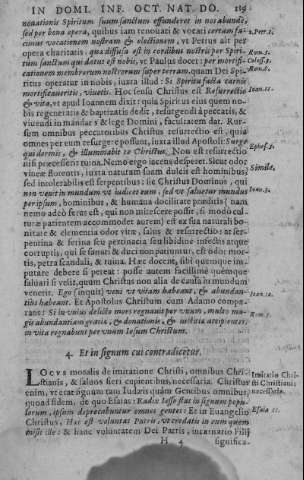 IN DOMI. INF. OCT. NAT. DO. 119
nouationis Spiritum suum sanctum effunderet in nos abunde,
sed per bona opera, quibus tam renouati & vocati certam fa-
cimus vocationem nostram & electionem, vt Petrus ait per
opera charitatis quæ diffusa est in cordibus nostris per Spiri-
tum sanctum qui datus est nobis, vt Paulus docet: per mortifi-
cationem membrorum nostrorum super terram, quam Dei Spi-
ritus operatur in nobis, iuxta illud: Si Spiritu facta carnis
mortificaueritis, viuetis. Hoc sensu Christus est Resurrectio
& vita, vt apud Ioannem dixit: quia Spiritus eius quem no-
bis regeneratis & baptizatis dedit, resurgendi à peccatis, &
viuendi in mandatis & lege Domini, facultatem dat. Rur-
sum omnibus peccatoribus Christus resurrectio est, quia
omnes per eum resurgere possunt, iuxta illud Apostoli: Surge
qui dormis, & illuminabit te Christus. Non est resurrectio
nisi præcessent ruina. Nemo ergo iacens desperet. Sicut odor
vineæ florentis, iuxta naturam suam dulcis est hominibus,
sed intolerabilis est serpentibus: ita Christus Dominus, qui
non venit in mundum vt iudicet eum, sed vt saluetur mundus
per ipsum, hominibus, & humana docilitate præditis (nam
nemo adeò ferus est, qui non mitescere possit, si modò cul-
turæ patientem accommodet aurem) est ex sua naturali bo-
nitate & clementia odor vitæ, salus & resurrectio: at ser-
pentina & ferina seu pertinacia seu libidine infectis atque
corruptis, qui se sanari & duci non patiuntur, est odor mor-
tis, petra scandali, & ruina. Hæc docent, sibi quemque im-
putare debere si pereat: posse autem facillimè quemque
saluari si velit, quum Christus non alia de causa in mundum
venerit. Ego (inquit) veni vt vitam habeant, & abundan-
tius habeant. Et Apostolus Christum cum Adamo compa-
rans: Si in vnius delicto mors regnauit per vnum, multo ma-
gis abundantiam gratiæ, & donationis, & iustitiæ accipientes,
in vita regnabunt per vnum Iesum Christum.
4. Et in signum cui contradicetur.
LOCVS moralis de imitatione Christi, omnibus Chri-
stianis, & saluos fieri cupientibus, necessaria. Christus
enim, vt erat signum tam Iudæis quàm Gentibus omnibus,
quoad fidem, de quo Esaias: Radix Iesse stat in signum popu-
lorum, ipsum deprecabuntur omnes gentes: Et in Euangelio
Christus, Hæc est voluntas Patris, vt credatis in eum quem
misit ille: & hanc voluntatem Dei Patris, incarnatio Filij
H 4 significa-
2. Pet. 1.
Rom. 5.
Coloss. 3.
Rom. 8.
Ioan. 11.
Ephes. 5.
Simile.
Ioan. 3.
Ioan. 10.
Rom. 5.
Imitatio Chri-
sti Christianis
necessaria.
Esaiæ 11.